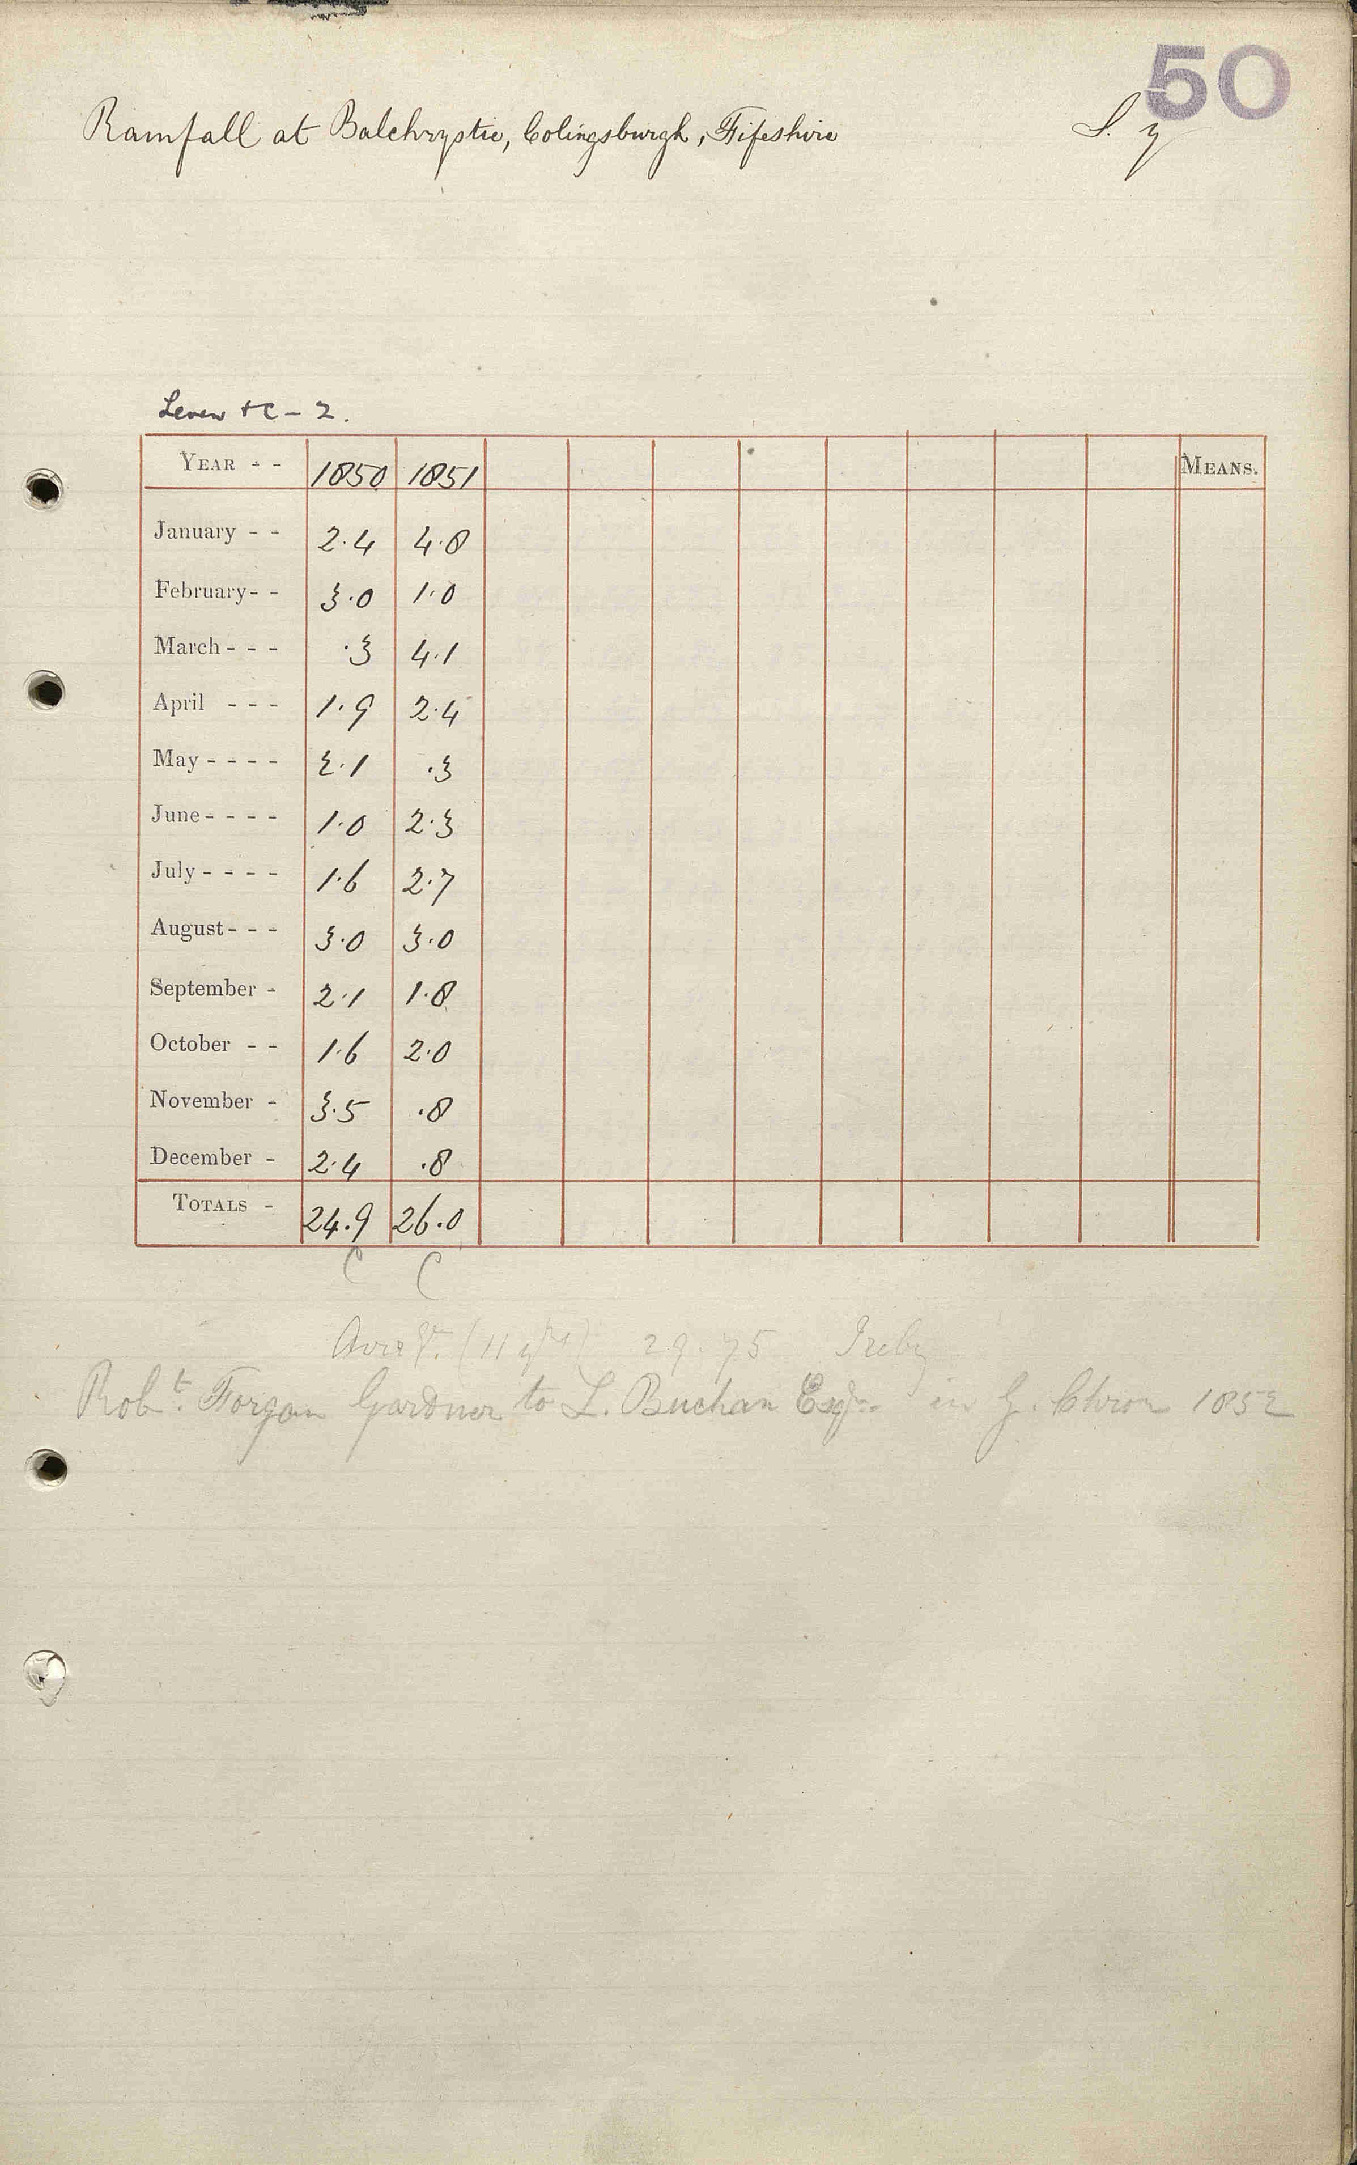 50
Rainfall at Balchrystie, Colingsburgh, Fifeshire
S. y
Leven &c - 2.
YEAR - - 1850 1851 MEANS.
January - - 2.4 4.8
February - - 3.0 1.0
March - - - .3 4.1
April - - - 1.9 2.4
May - - - - 2.1 .3
June - - - - 1.0 2.3
July - - - - 1.6 2.7
August - - - 3.0 3.0
September - 2.1 1.8
October - - 1.6 2.0
November - 3.5 .8
December - 2.4 .8
TOTALS - 24.9 26.0
C C
(11 yrs) 29.75 Ireby
Robt. Forgan Gardner to L. Buchan Esqr. in G. Chron 1852